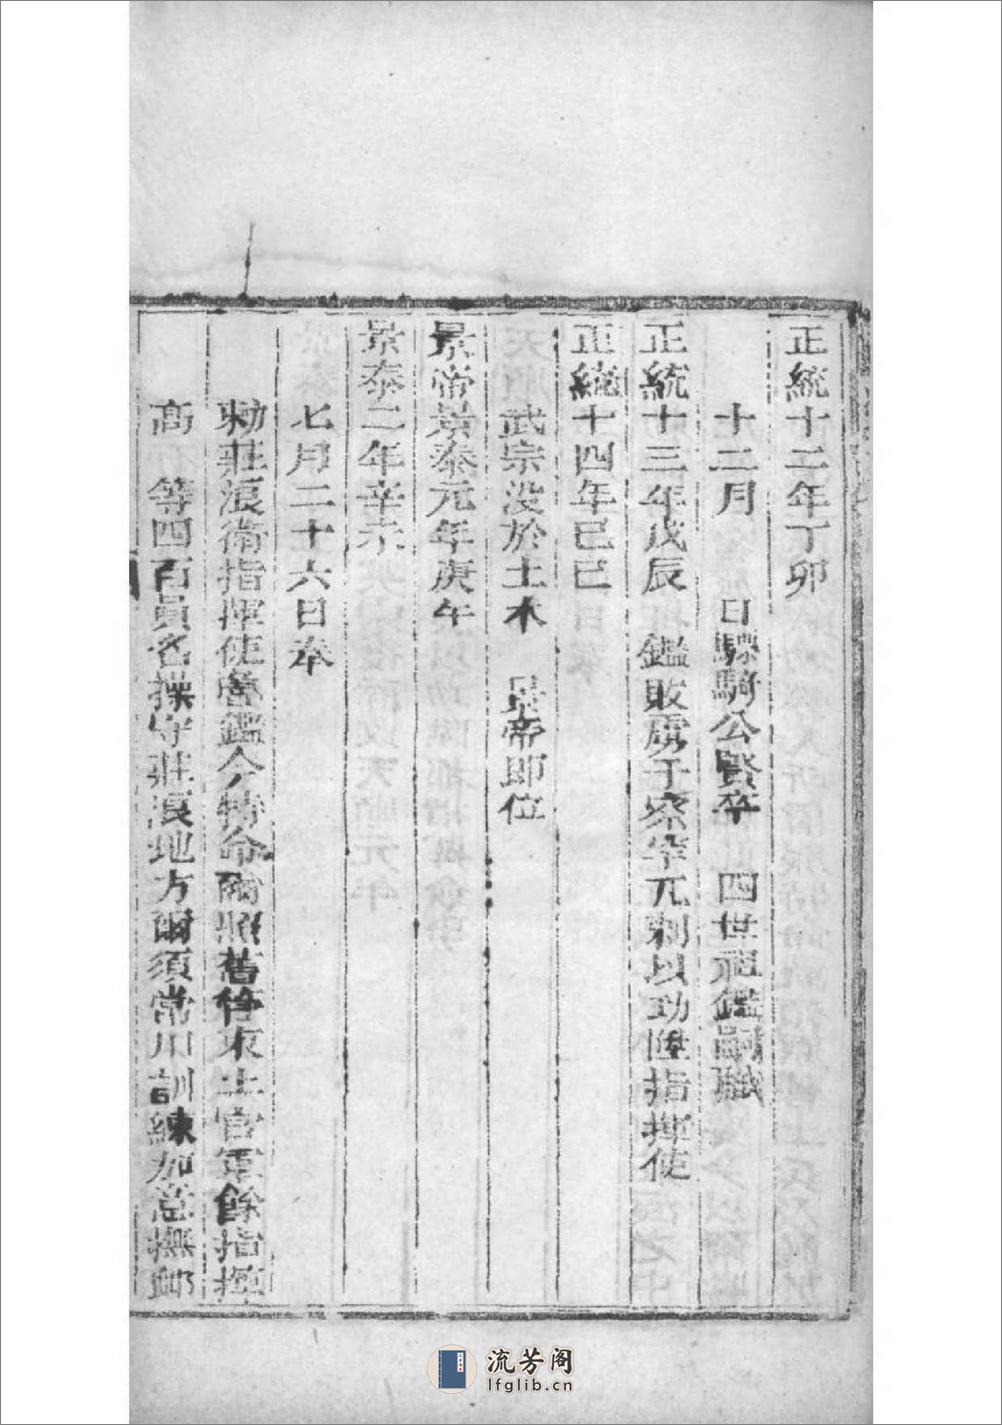 正統十二年丁卯
十二月　日驃騎公賢卒　四世祖鑑嗣職
正統十三年戊辰　鑑敗虜于察罕兀剌以功陞指揮使
正統十四年己巳
武宗没於土木　景帝即位
景帝景泰元年庚午
景泰二年辛未
七月二十六日奉
勅莊浪衛指揮使魯鑑今特命爾照舊管束土官軍餘指揮
高　等四百員名操守莊浪地方爾須常川訓練加意撫卹
流芳阁
lfglib.cn